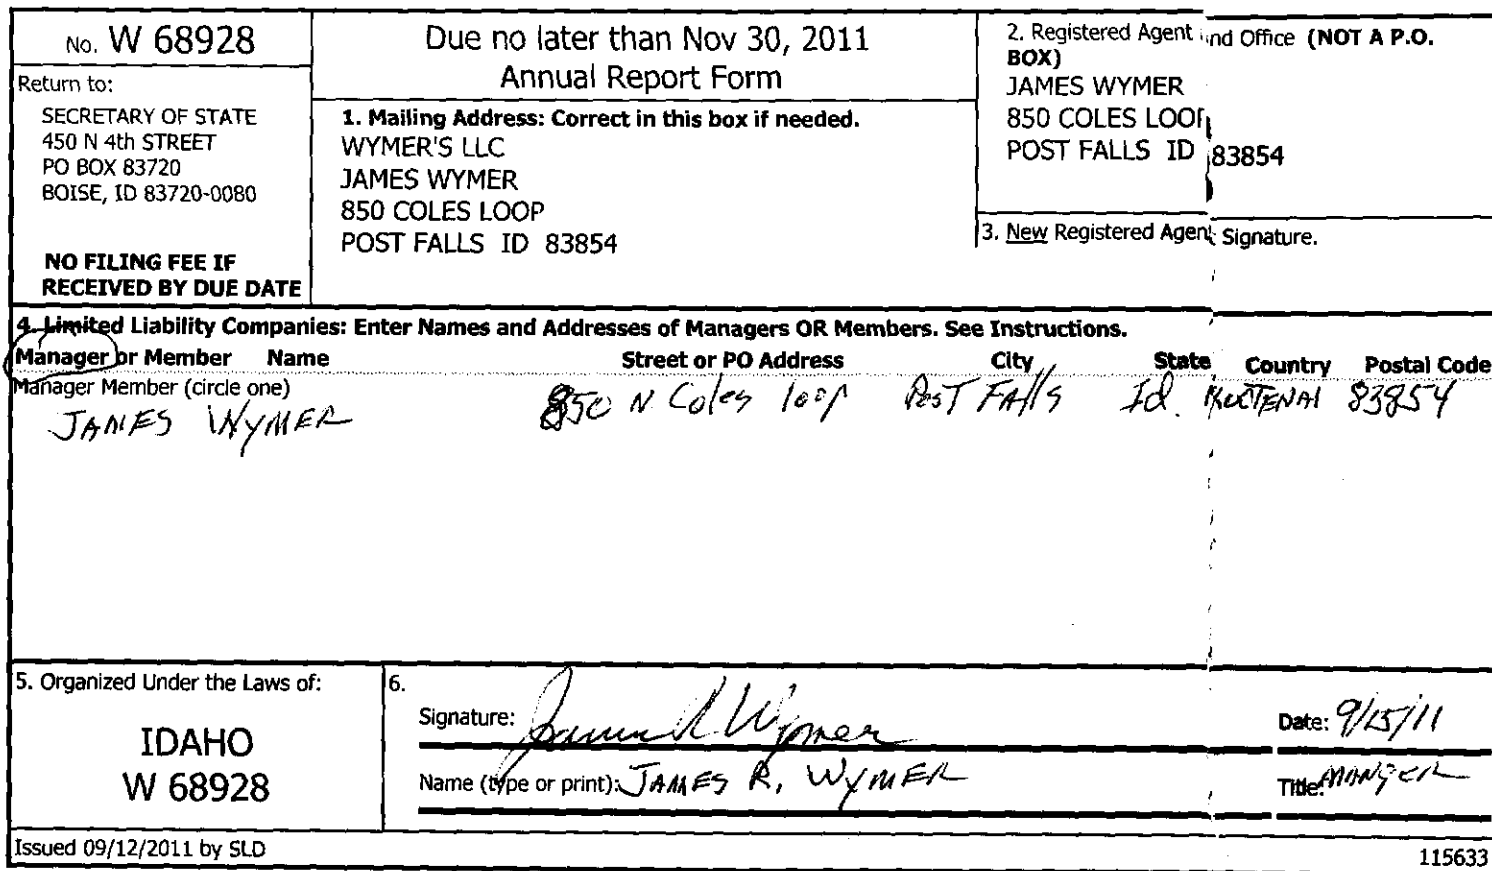 No. W 68928
Return to:
SECRETARY OF STATE
450 N 4th STREET
PO BOX 83720
BOISE, ID 83720-0080
NO FILING FEE IF
RECEIVED BY DUE DATE
Due no later than Nov 30, 2011
Annual Report Form
1. Mailing Address: Correct in this box if needed.
WYMER'S LLC
JAMES WYMER
850 COLES LOOP
POST FALLS ID 83854
2. Registered Agent and Office (NOT A P.O.
BOX)
JAMES WYMER
850 COLES LOOP
POST FALLS ID 83854
3. New Registered Agent Signature.
4. Limited Liability Companies: Enter Names and Addresses of Managers OR Members. See Instructions.
Manager or Member Name Street or PO Address City State Country Postal Code
Manager Member (circle one)
JAMES WYMER 850 N Coles loop Post Falls Id. KOOTENAI 83854
5. Organized Under the Laws of:
IDAHO
W 68928
6.
Signature: James R Wymer Date: 9/15/11
Name (type or print): JAMES R. WYMER Title: MANGER
Issued 09/12/2011 by SLD
115633